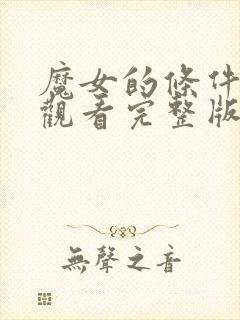 魔女的條件
觀看完整版
無聲之音